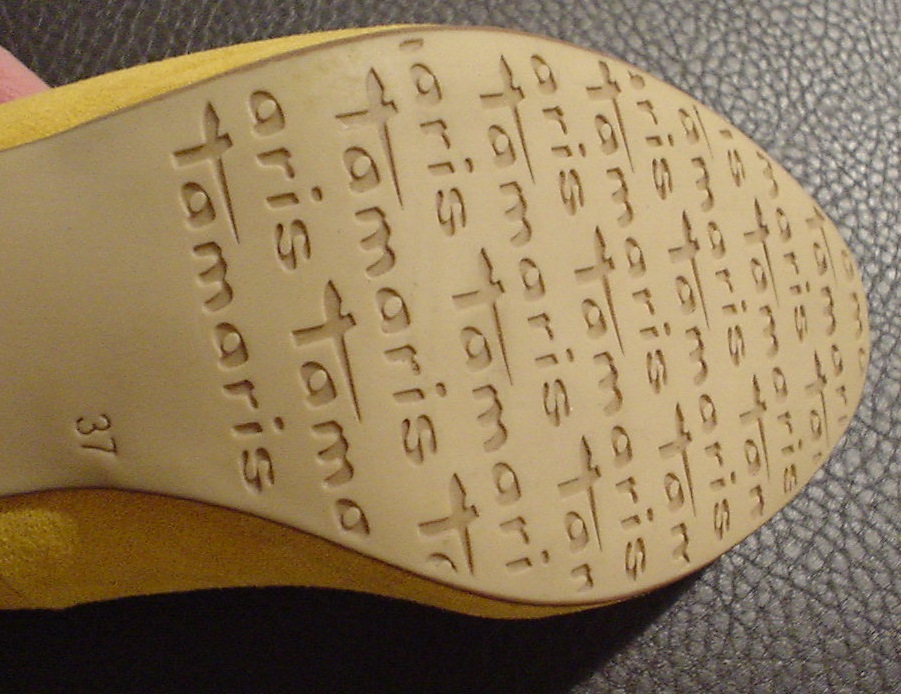 tam ar
m aris ta
is tamaris
am aris tam
aris tamaris
tamaris tam
aris tamaris
tamaris tam
aris tamari
tamaris t
aris tama
tamaris
37